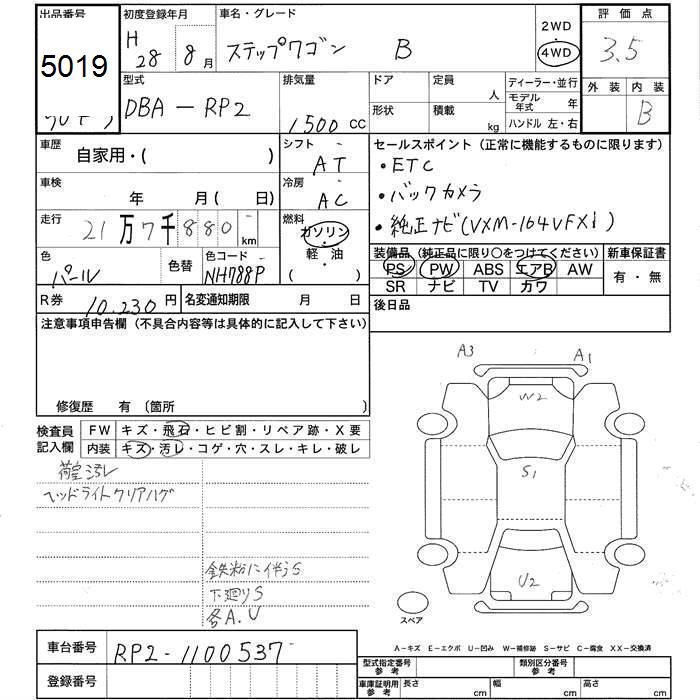 出品番号 初度登録年月 車名・グレード 2WD 評価点
5019 H 28 8月 ステップワゴン B 4WD 3.5
型式 排気量 ドア 定員 人 ディーラー・並行 外装 内装
DBA-RP2 1500 CC 形状 積載 kg モデル年式 年 B
ハンドル 左・右
車歴 自家用・( ) シフト AT セールスポイント (正常に機能するものに限ります)
・ETC
車検 年 月( 日) 冷房 AC ・バックカメラ
走行 21万7千880km 燃料 ガソリン・軽油 ( ) ・純正ナビ(VXM-164VFXi)
色 パール 色替 色コード NH788P 装備品 (純正品に限り○をつけてください) 新車保証書
PS PW ABS エアB AW 有・無
SR ナビ TV カワ
R券 10,230円 名変通知期限 月 日 後日品
注意事項申告欄 (不具合内容等は具体的に記入して下さい)
修復歴 有 〔箇所 〕
検査員記入欄 FW キズ・飛石・ヒビ割・リペア跡・X要
内装 キズ・汚レ・コゲ・穴・スレ・キレ・破レ
荷室汚レ
ヘッドライトクリアハゲ
鉄粉に伴うS
下廻りS
各A.U
A3 A1
W2
S1
U2
スペア
A-キズ E-エクボ U-凹み W-補修跡 S-サビ C-腐食 XX-交換済
車台番号 RP2-1100537
登録番号
型式指定番号 参考 類別区分番号 参考
車庫証明用 参考 長さ cm 幅 cm 高さ cm